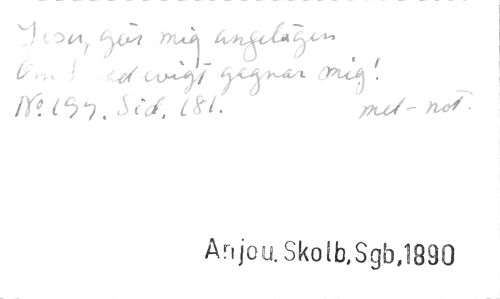 Jesu, gör mig angelägen
Om hvad evigt gagnar mig!
No 197. Sid. 181. mel-not.
Anjou. Skolb, Sgb, 1890